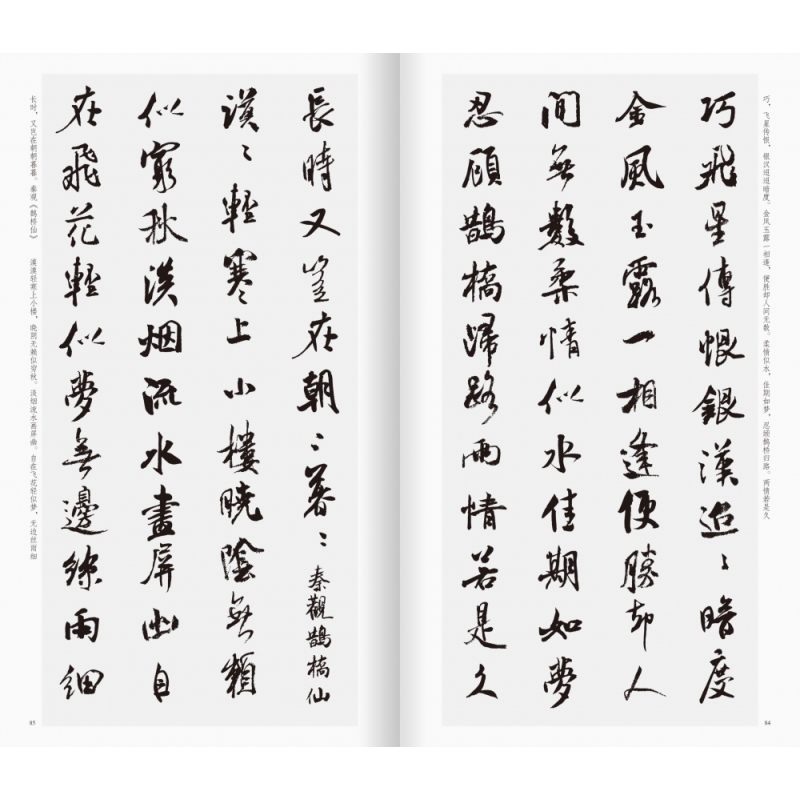 巧，飞星传恨，银汉迢迢暗度。金风玉露一相逢，便胜却人间无数。柔情似水，佳期如梦，忍顾鹊桥归路。两情若是久
巧飛星傳恨銀漢迢〻暗度
金風玉露一相逢便勝却人
間無數柔情似水佳期如夢
忍顧鵲橋歸路兩情若是久
84
長時又豈在朝〻暮〻秦觀鵲橋仙
漠〻輕寒上小樓曉陰無賴
似窮秋淡烟流水畫屏幽自
在飛花輕似夢無邊絲雨細
长时，又岂在朝朝暮暮。秦观《鹊桥仙》 漠漠轻寒上小楼，晓阴无赖似穷秋。淡烟流水画屏幽。自在飞花轻似梦，无边丝雨细
85